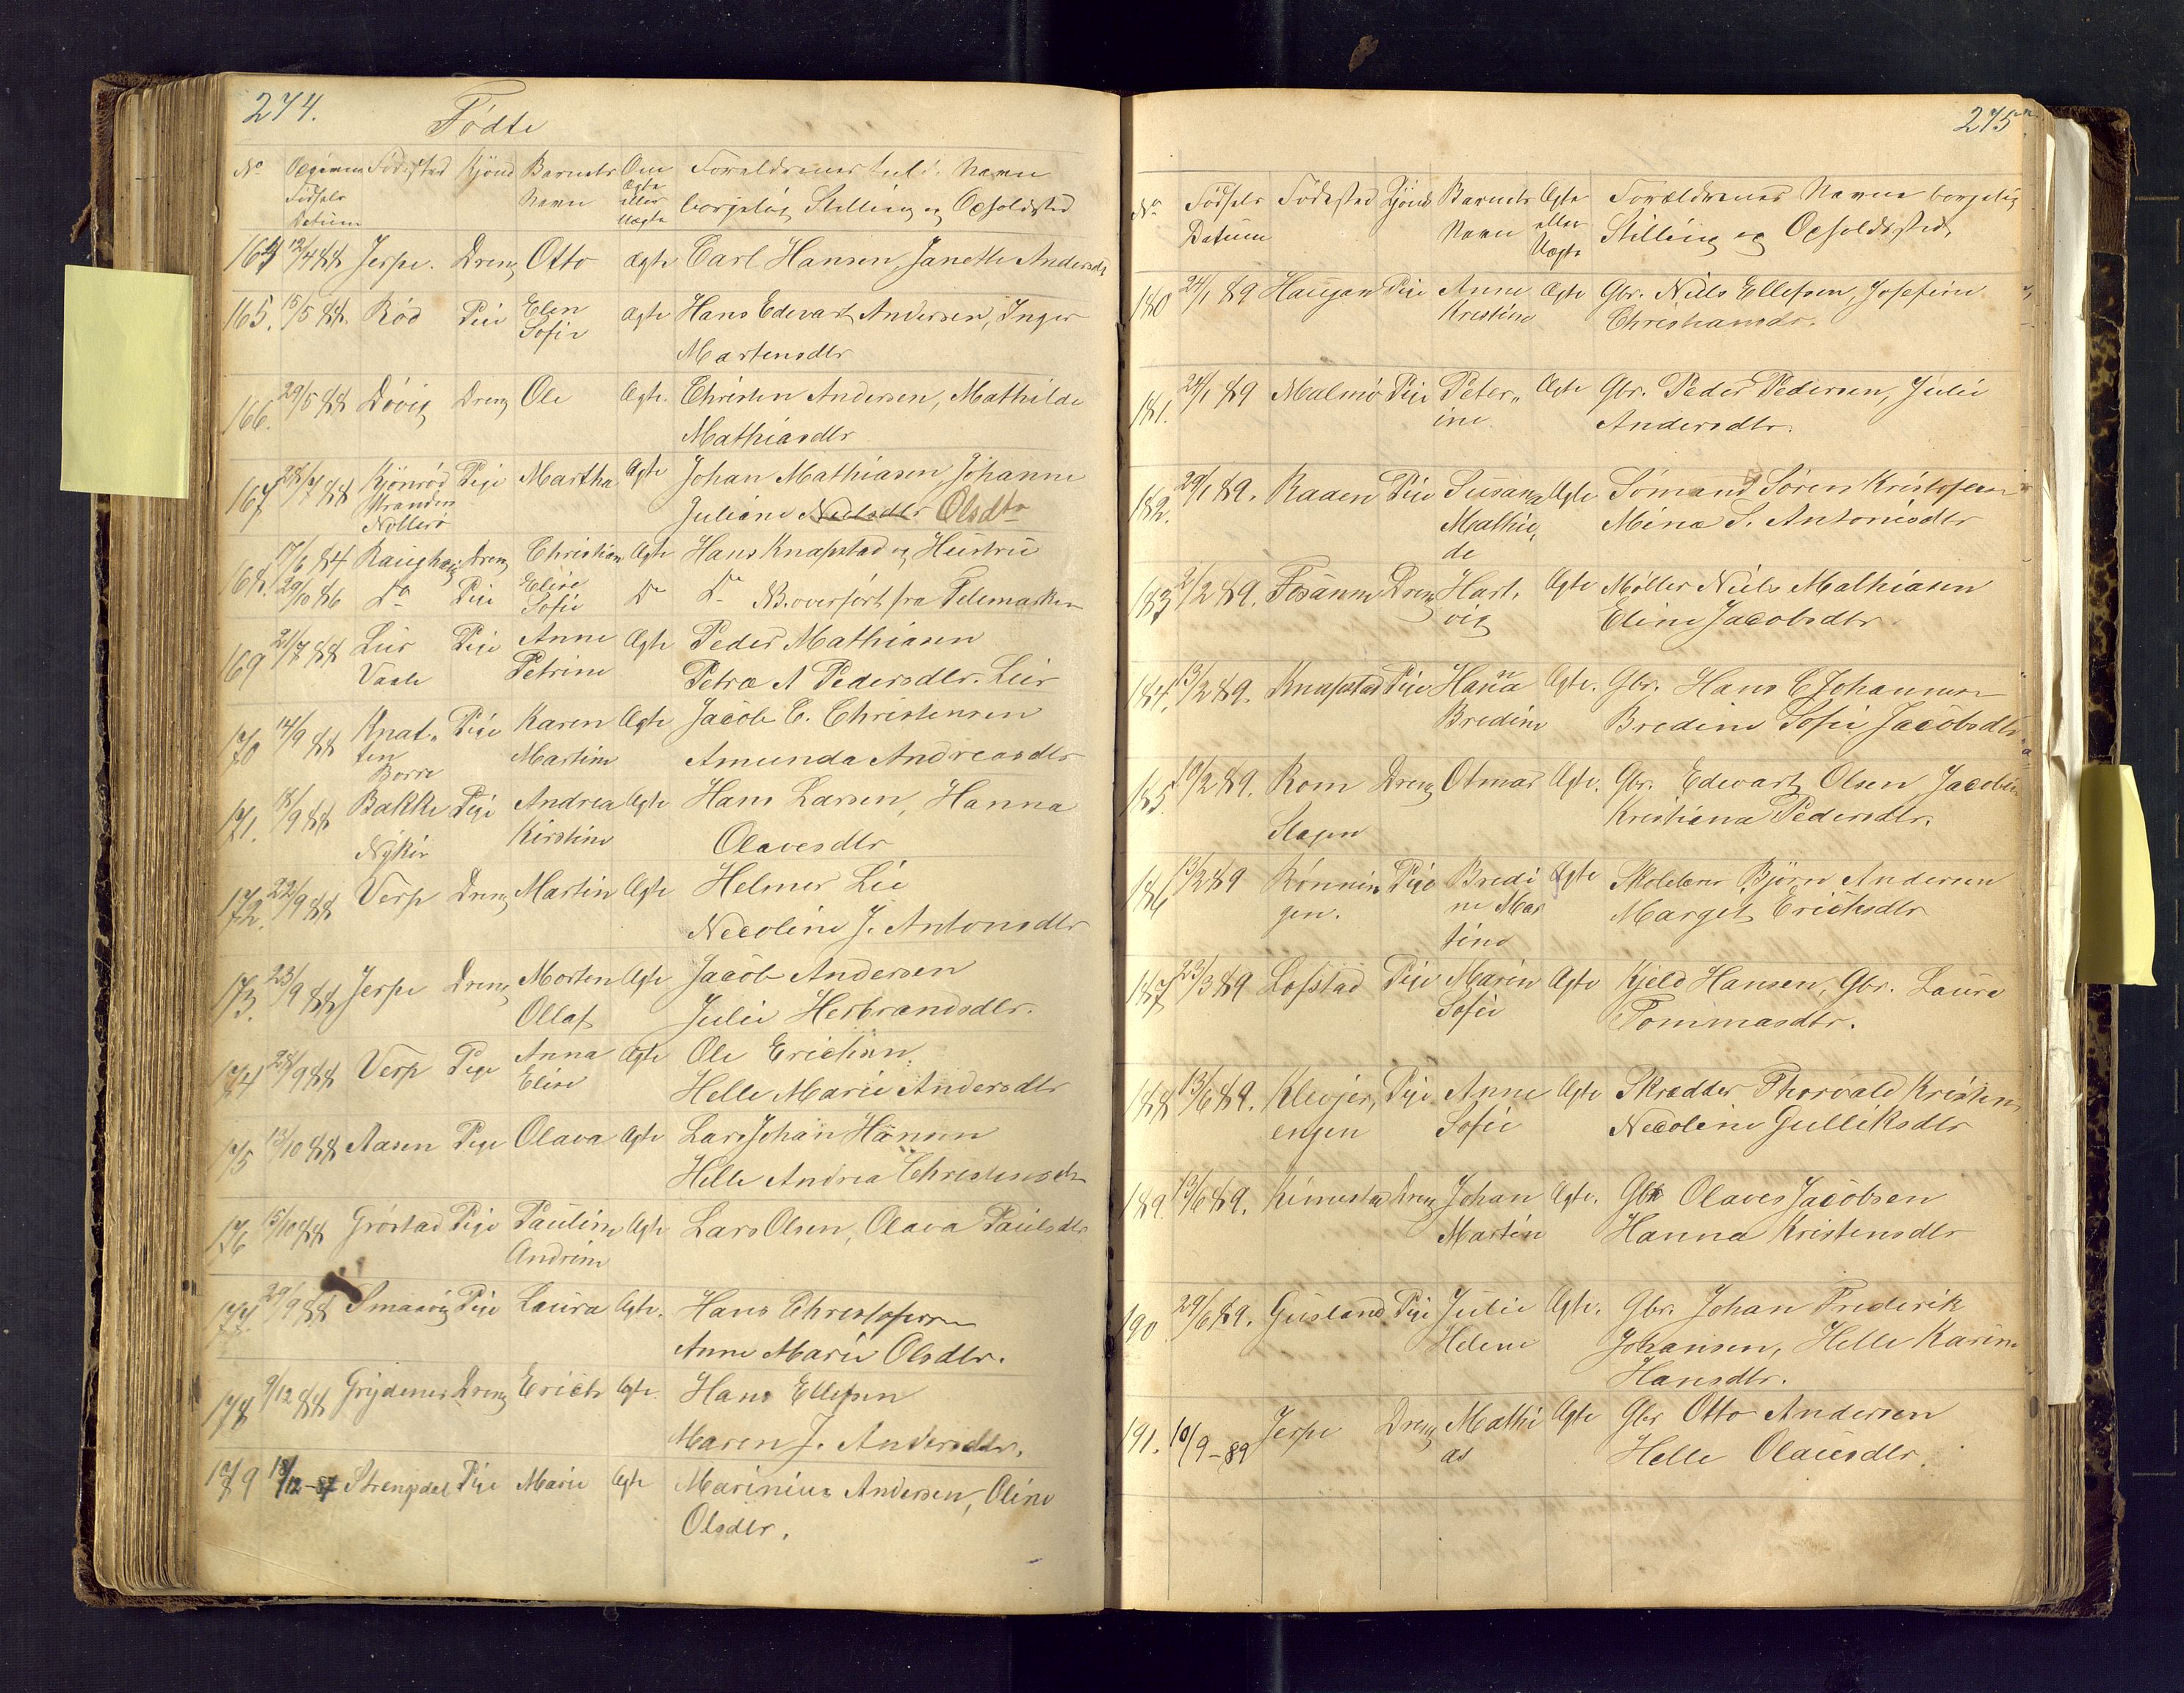 274.
Födte
No Opgiven Fødested Kjönd Barnets Om Foreldrenes fulde Navn
Fødsels Navn Ægte eller Uægte borgelig Stilling og Opholdsted
Datum
164 12/4 88 Jerpe. Dreng Otto Ægte Carl Hansen, Janette Andersdt
165. 15/5 88. Röd Pige Elen Ægte Hans Edevart Andersen, Inger
Sofie Martensdtr
166. 29/5 88 Dövig Dreng Ole Ægte. Christen Andersen, Mathilde
Mathiasdtr
167 28/7 88 Kjönröd Pige Martha Ægte Johan Mathiasen, Johanne
Stranden
Nötterö Juliane Nielsdtr Olsdtr
168. 17/6 84 Raughaug Dreng Christian Ægte Hans Knapstad og Hustru
20/10 86 Do Pige Elise Sofie Do Do NB. overfört fra Telemarken
169 21/7 88 Leir Pige Anne Ægte Peder Mathiasen
Vaale Petrine Petra A Pedersdtr. Leir
170 14/9 88 Knat„ Pige Karen Ægte Jacob C. Christensen
ten
Borre Martine Amunda Andreasdtr
171. 18/9 88 Bakke Pige Andrea Ægte Hans Larsen, Hanna
Nykir Kirstine Olavesdtr
172. 22/9 88 Verp Dreng Martin Ægte Helmer Lie
Necoline J. Antonsdtr
173. 23/9 88 Jerpe Dreng Morten Ægte Jacob Andersen
Ollaf Julie Herbrandsdtr.
174 28/9 88 Verp Pige Anna Ægte Ole Erichsen
Elise Helle Marie Andersdtr
175 13/10 88 Aasen Pige Olava Ægte Lars Johan Hansen
Helle Andrea Christensdtr
176 15/10 88 Gröstad Pige Pauline Ægte Lars Olsen, Olava Paulsdtr
Andrine
177. 29/9 88 Smaavig Pige Laura Ægte. Hans Christofersen
Anne Marie Olsdtr.
178 9/12 88 Grydenes Dreng Erich Ægte. Hans Ellefsen
Maren J. Andersdtr.
179 18/12-87 Strengsdal Pige Marie Ægte Marinius Andersen, Oline
Olsdtr.
275
No Fødsels Fødested Kjönd Barnets Ægte Forældrenes Navne borgelig
Datum Navn eller Uægte Stilling og Opholdsted
180 24/1 89 Haugan Pige Anne Ægte Gbr. Niels Ellefsen, Josefine
Kristine Christiansdr.
181. 24/1 89 Malmö Pige Peter„ Ægte Gbr. Peder Pedersen, Julie
ine. Andersdtr.
182. 29/1 89. Raaen Pige Susana Ægte Sömand Sören Kristofersen
Mathil, Mina S. Antonisdtr
de
183 2/2 89. Fosanne Dreng Hart, Ægte Möller Niels Mathiasen
vig Eline Jacobsdtr
184. 13/2 89. Knapstad Pige Hanna Ægte. Gbr. Hans C Johannesen
Bredine Bredine Sofie Jacobsdtr
185. 10/2 89. Rom Dreng Otmar Ægte. Gbr. Edevart Olsen, Jacobine
Slagen Kristiana Pedersdtr.
186 13/2 89 Rönnin Pige Bredi Ægte Skolelærer Björn Andersen
gen. ne Mar Marget Erichsdtr
tine
187 23/3 89 Lofstad Pige Maren Ægte Kjeld Hansen, Gbr. Laura
Sofie Tommasdtr.
188 13/6 89. Klevjer, Pige Anne Ægte Skrædder Thorvald Kristens
engen Sofie Necoline Gulliksdtr
189. 13/6 89. Kimestad Dreng Johan Ægte. Gbr Olaves Jacobsen
Martin Hanna Kristensdtr
190 29/6 89. Gusland Pige Julie Ægte. Gbr. Johan Frederik
Helene Johansen, Helle Karine
Hansdtr.
191. 10/9-89 Jerpe Dreng Mathi Ægte Gbr Otto Andersen
as Helle Olausdtr.